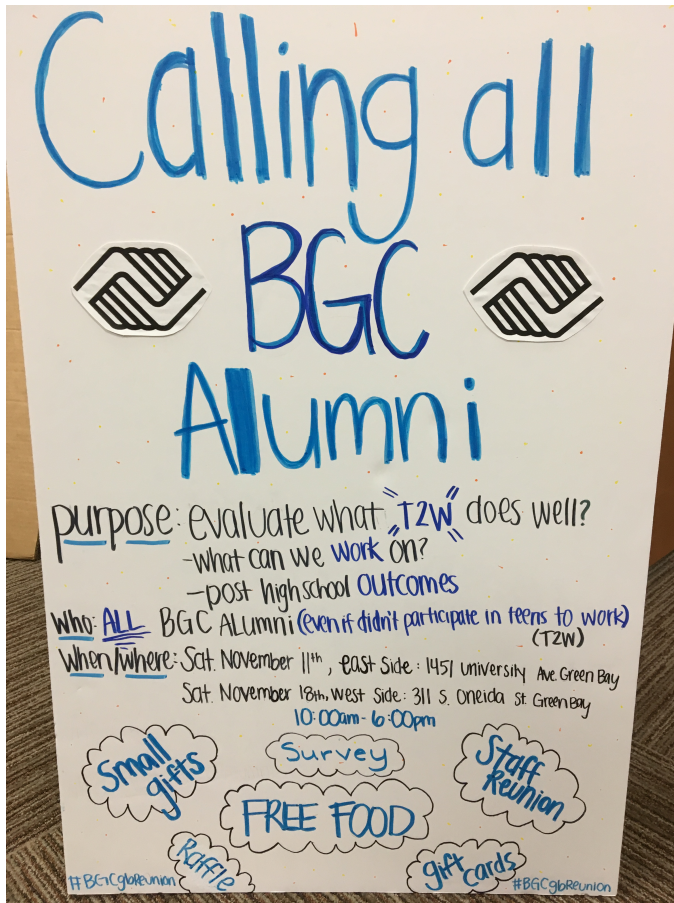 Calling all
BGC
Alumni
purpose: evaluate what "T2W" does well?
-what can we work on?
-post highschool outcomes
Who: ALL BGC ALumni (even if didn't participate in teens to work)
(T2W)
When/where: Sat. November 11th, east side: 1451 university Ave. Green Bay
Sat. November 18th, West side: 311 S. Oneida St. Green Bay
10:00am-6:00pm
Small
gifts
Survey
Staff
Reunion
FREE FOOD
Raffle
gift
cards
#BGCgbReunion
#BGCgbReunion